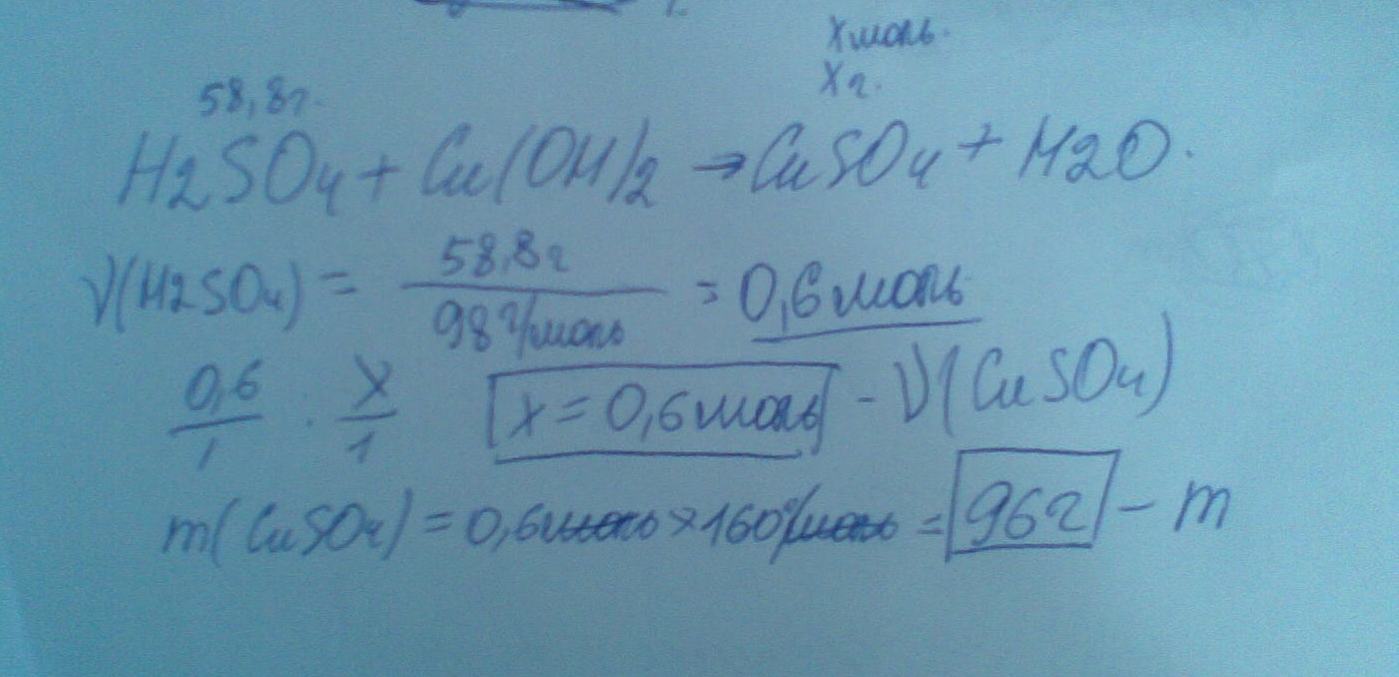 x моль.
x г.
58,8г.
H2SO4 + Cu(OH)2 → CuSO4 + H2O.
ν(H2SO4) = 58,8г / 98 г/моль = 0,6 моль
0,6/1 · x/1 x = 0,6 моль - ν(CuSO4)
m(CuSO4) = 0,6 моль × 160 г/моль = 96 г - m